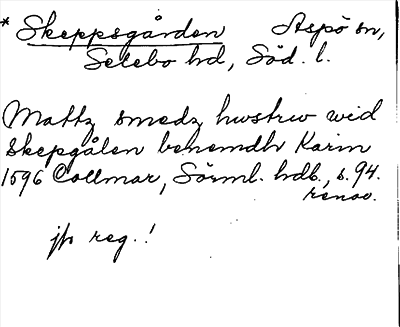 * Skeppsgården Aspö sn,
Selebo hd, Söd. l.
Mattz smedz hwstrw wid
Skepgålen benemdh Karin
1596 Collmar, Sörml. hdb., s. 94.
renov.
jfr reg.!